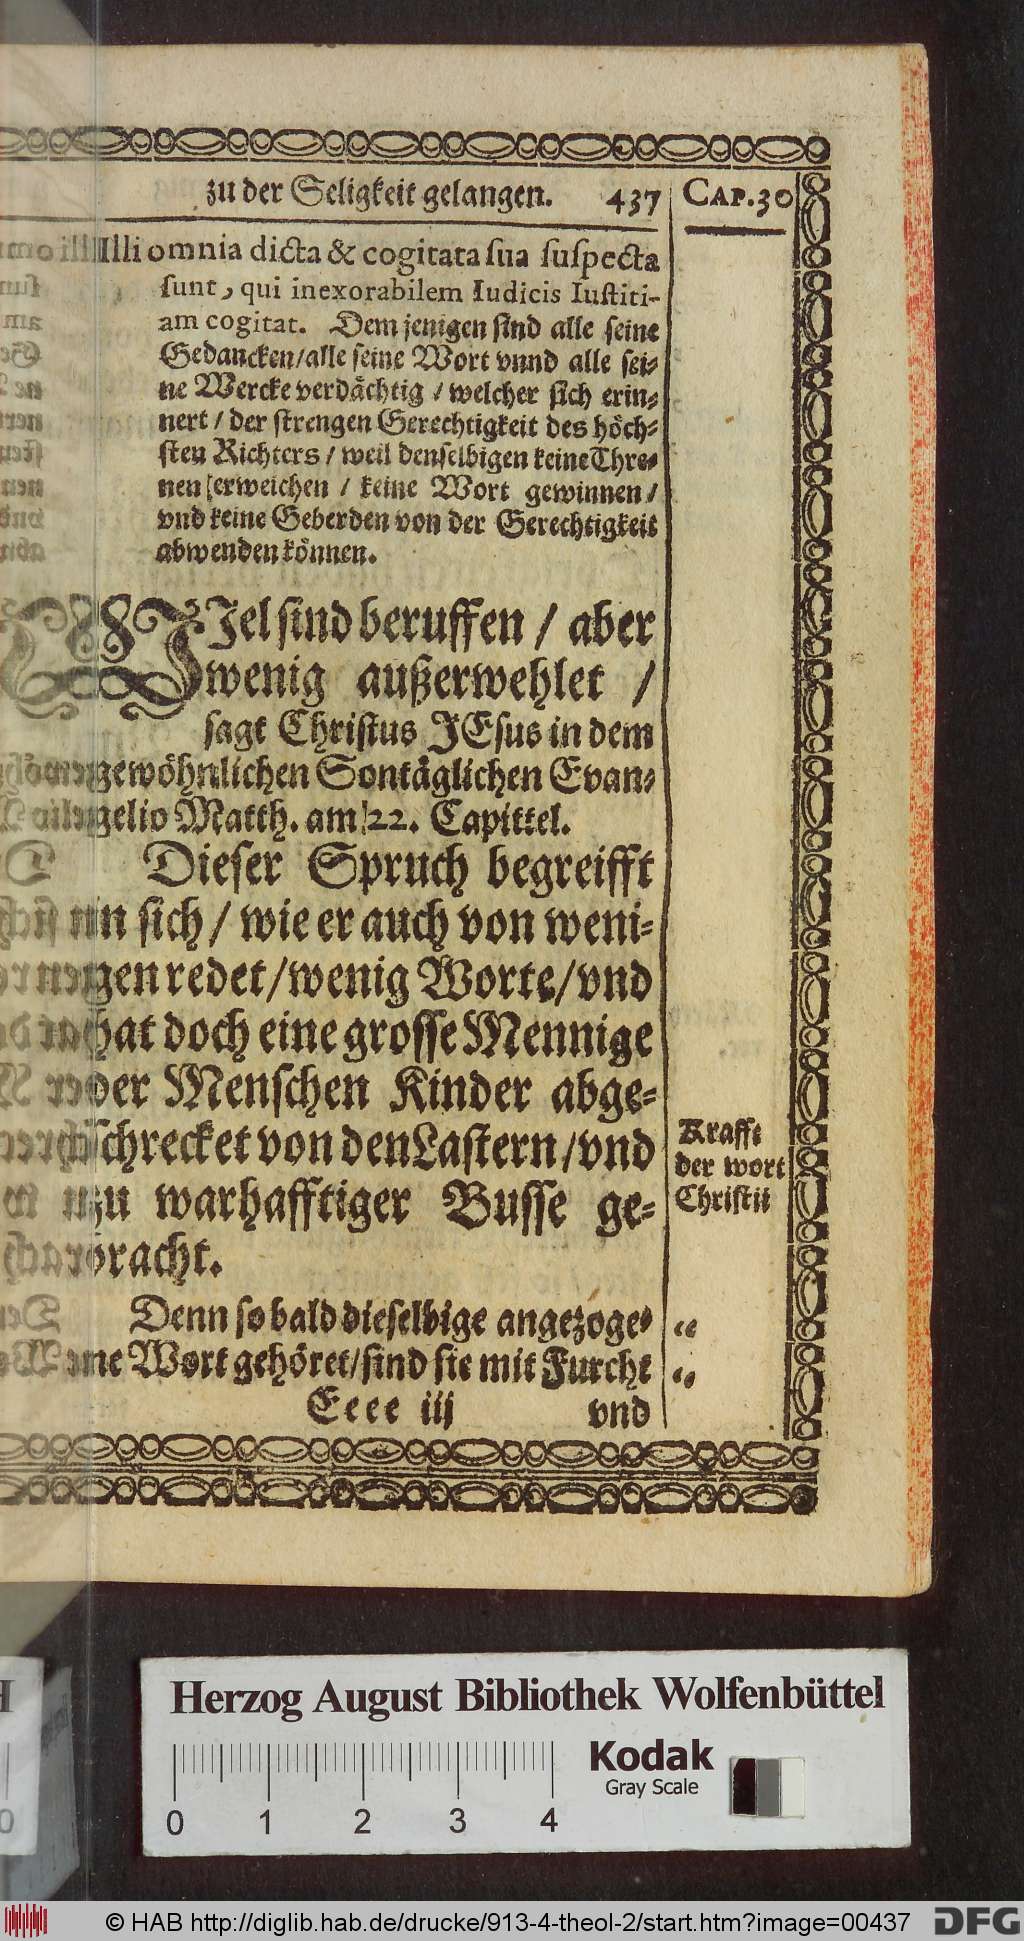 zu der Seligkeit gelangen. 437 CAP.30
Illi omnia dicta & cogitata sua suspecta
sunt, qui inexorabilem Iudicis Iustiti-
am cogitat. Dem jenigen sind alle seine
Gedancken/alle seine Wort vnnd alle sei-
ne Wercke verdächtig / welcher sich erin-
nert / der strengen Gerechtigkeit des höch-
sten Richters / weil denselbigen keine Thre-
nen erweichen / keine Wort gewinnen /
vnd keine Geberden von der Gerechtigkeit
abwenden können.
VIel sind beruffen / aber
wenig außerwehlet /
sagt Christus JEsus in dem
gewöhnlichen Sontäglichen Evan-
gelio Matth. am 22. Capittel.
Dieser Spruch begreifft
in sich / wie er auch von weni-
gen redet / wenig Worte / vnd
hat doch eine grosse Mennige
der Menschen Kinder abge-
schrecket von den Lastern / vnd
zu warhafftiger Busse ge-
bracht.
Krafft
der wort
Christii
Denn so bald dieselbige angezoge- „
ne Wort gehöret/sind sie mit Furcht „
Eeee iij vnd
Herzog August Bibliothek Wolfenbüttel
Kodak
Gray Scale
0 1 2 3 4
© HAB http://diglib.hab.de/drucke/913-4-theol-2/start.htm?image=00437 DFG